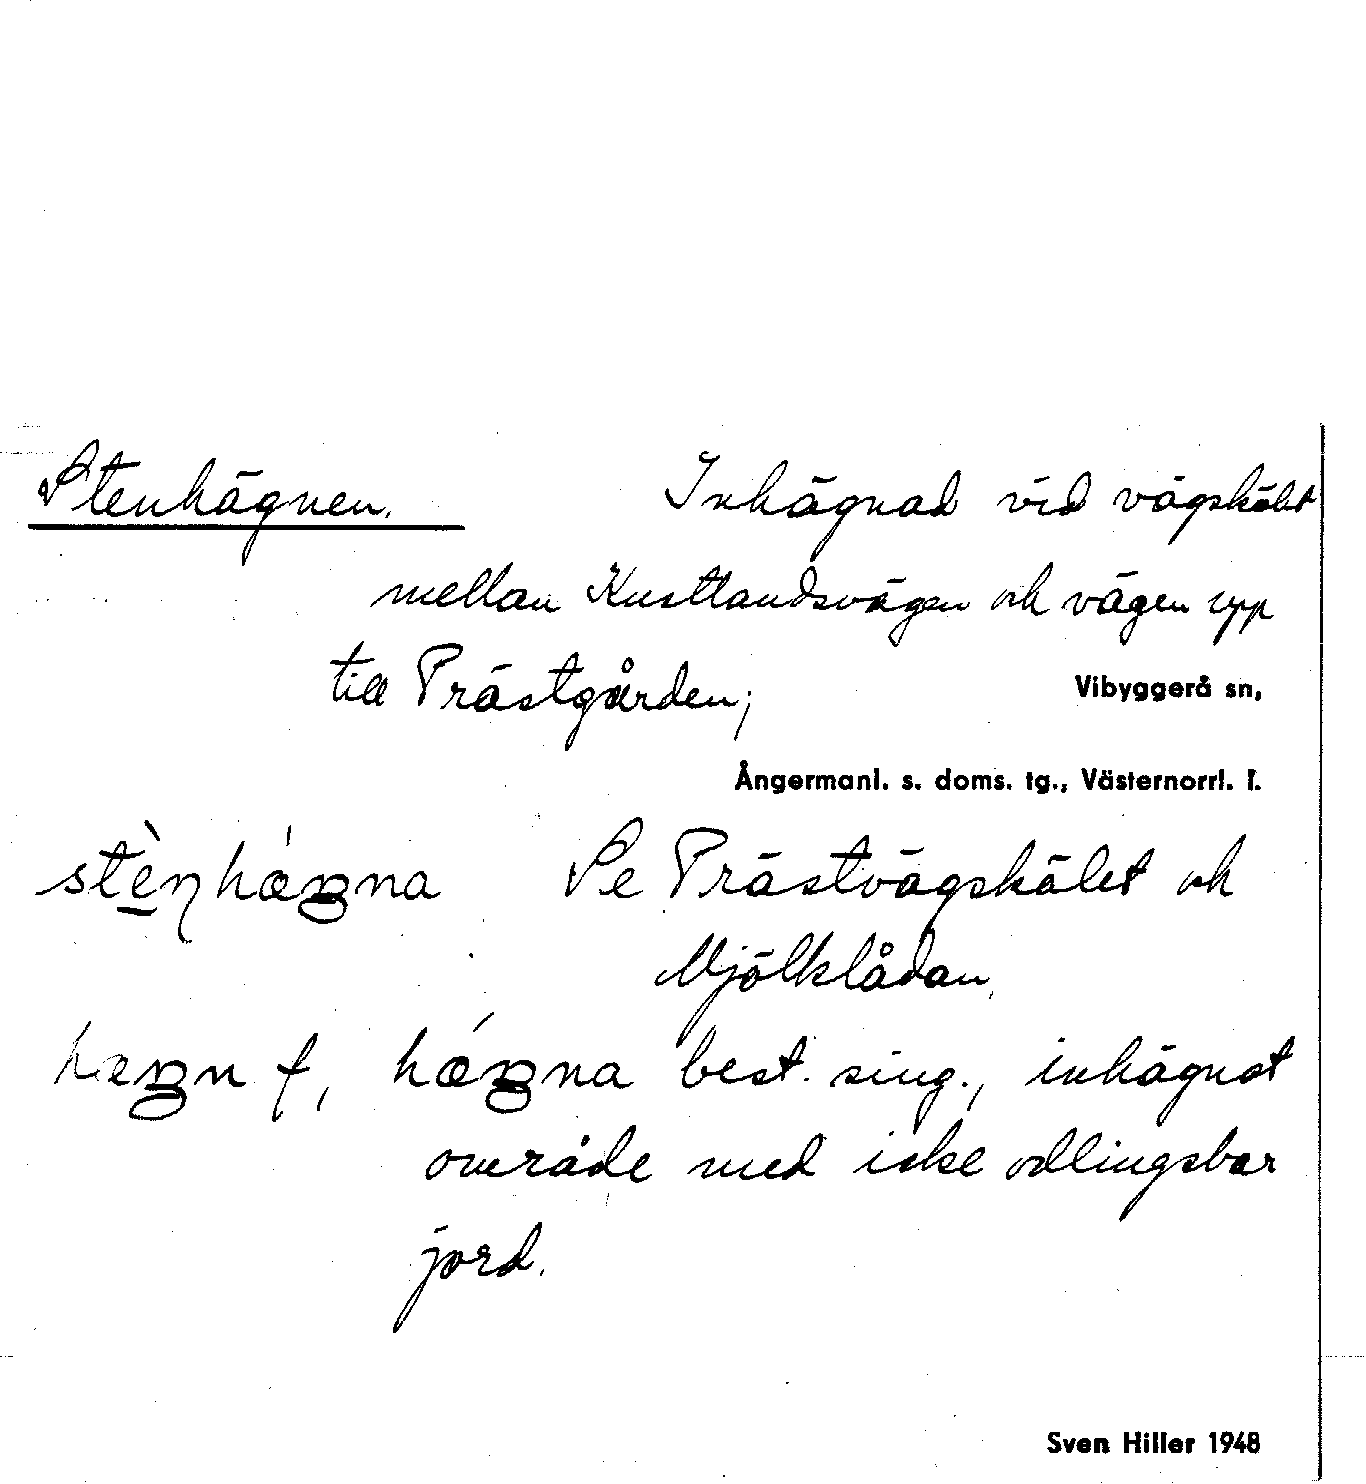 Stenhägnen. Inhägnad vid vägskälet
mellan Kustlandsvägen och vägen upp
till Prästgården;
Vibyggerå sn,
Ångermanl. s. doms. tg., Västernorrl. l.
Se Prästvägskälet och
Mjölklådan.
f, best. sing., inhägnat
område med icke odlingsbar
jord.
Sven Hiller 1948